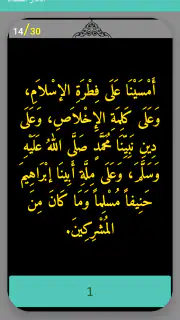 14/30
أَمْسَيْنَا عَلَى فِطْرَةِ الإِسْلاَمِ،
وَعَلَى كَلِمَةِ الإِخْلاَصِ، وَعَلَى
دِينِ نَبِيِّنَا مُحَمَّدٍ صَلَّى اللهُ عَلَيْهِ
وَسَلَّمَ، وَعَلَى مِلَّةِ أَبِينَا إبْرَاهِيمَ
حَنِيفاً مُسْلِماً وَمَا كَانَ مِنَ
المُشْرِكِينَ.
1